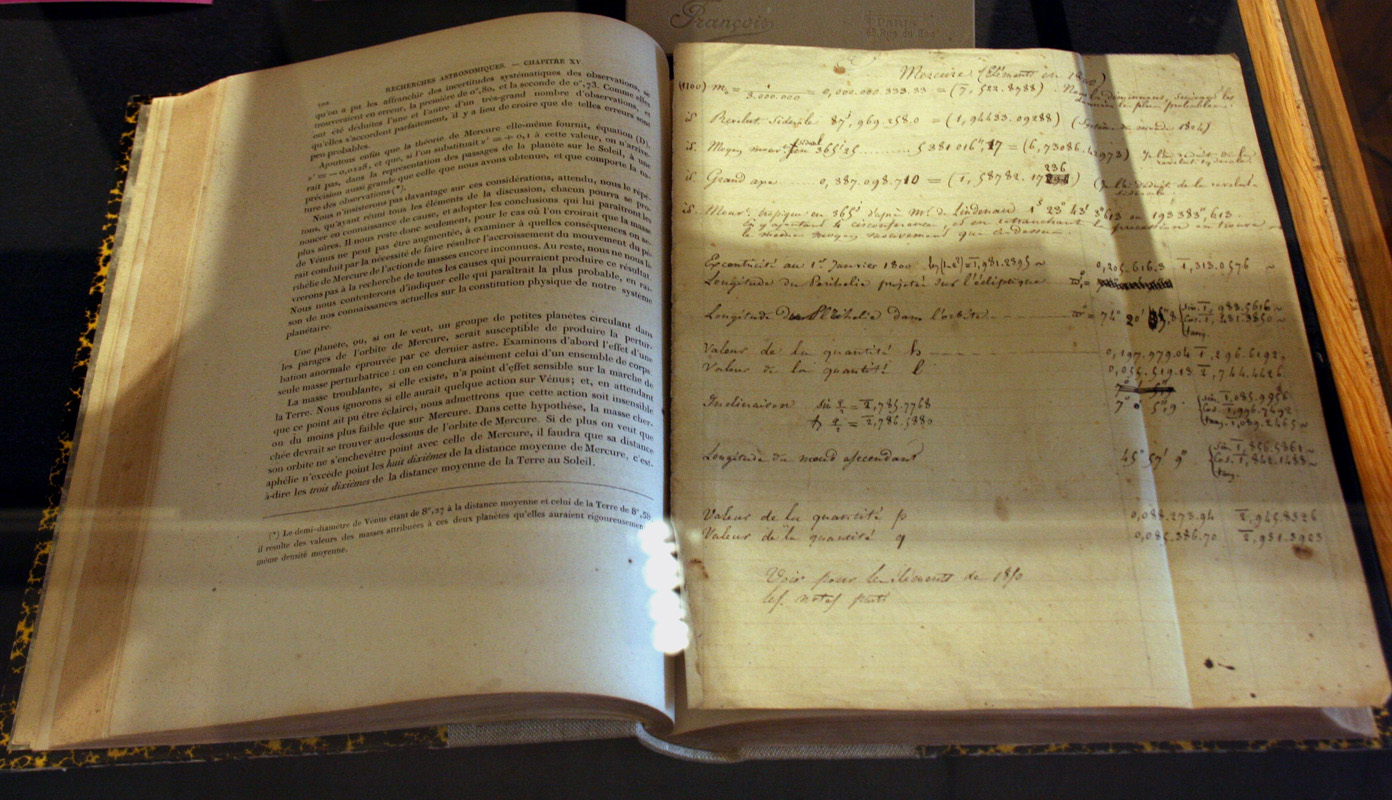 François
PARIS
RECHERCHES ASTRONOMIQUES. — CHAPITRE XV
qu'on a pas les affranchie des incertitudes systématiques des observations, se
trouveraient en erreur, la première de 0",80, et la seconde de 0",73. Comme elles
ont été déduites l'une et l'autre d'un très-grand nombre d'observations, et
qu'elles s'accordent parfaitement, il y a lieu de croire que de telles erreurs sont
peu probables.
Ajoutons enfin que la théorie de Mercure elle-même fournit, équation (D),
ν' = − 0,0128, et que, si l'on substituait ν' = + 0,1 à cette valeur, on n'arrive-
rait pas, dans la représentation des passages de la planète sur le Soleil, à une
précision aussi grande que celle que nous avons obtenue, et que comporte la na-
ture des observations (*).
Nous n'insisterons pas davantage sur ces considérations, attendu, nous le répé-
tons, qu'ayant réuni tous les éléments de la discussion, chacun pourra se pro-
noncer en connaissance de cause, et adopter les conclusions qui lui paraîtront les
plus sûres. Il nous reste donc seulement, pour le cas où l'on croirait que la masse
de Vénus ne peut pas être augmentée, à examiner à quelles conséquences on se-
rait conduit par la nécessité de faire résulter l'accroissement du mouvement du pé-
rihélie de Mercure de l'action de masses encore inconnues. Au reste, nous ne nous li-
vrerons pas à la recherche de toutes les causes qui pourraient produire ce résultat.
Nous nous contenterons d'indiquer celle qui paraîtrait la plus probable, en rai-
son de nos connaissances actuelles sur la constitution physique de notre système
planétaire.
Une planète, ou, si on le veut, un groupe de petites planètes circulant dans
les parages de l'orbite de Mercure, serait susceptible de produire la pertur-
bation anormale éprouvée par ce dernier astre. Examinons d'abord l'effet d'une
seule masse perturbatrice : on en conclura aisément celui d'un ensemble de corps.
La masse troublante, si elle existe, n'a point d'effet sensible sur la marche de
la Terre. Nous ignorons si elle aurait quelque action sur Vénus; et, en attendant
que ce point ait pu être éclairci, nous admettrons que cette action soit insensible
ou du moins plus faible que sur Mercure. Dans cette hypothèse, la masse cher-
chée devrait se trouver au-dessous de l'orbite de Mercure. Si de plus on veut que
son orbite ne s'enchevêtre point avec celle de Mercure, il faudra que sa distance
aphélie n'excède point les huit dixièmes de la distance moyenne de Mercure, c'est-
à-dire les trois dixièmes de la distance moyenne de la Terre au Soleil.
(*) Le demi-diamètre de Vénus étant de 8",37 à la distance moyenne et celui de la Terre de 8",58
il résulte des valeurs des masses attribuées à ces deux planètes qu'elles auraient rigoureusement
même densité moyenne.
Mercure. (Eléments en 1800)
3.000.000 = 0,000.000.333.33 = (7, 522.8788)
Revolut. Sidérale 87j,969.258.0 = (1,94433.09288)
Moyen mouv. 365j25 5381016",17 = (6,73086.42973)
Grand axe 0,387.098.710 = (1,58782.17 236)
Mouv. tropique en 365j d'après Mr. de Lindenau 1s 23° 43' 3"613 ou 193383",613
en y ajoutant la circonférence, et en retranchant la précession on trouve
le même moyen mouvement que ci-dessus.
Excentricité au 1er Janvier 1800 0,205.616.3 1,313.0576
Longitude du Périhélie projetée sur l'écliptique
Longitude du Périhélie dans l'orbite 74° 20'
Valeur de la quantité h 0,197.979.04 1,296.6192
Valeur de la quantité l 1,744.4426
Inclinaison 7° 0' 5",9
Longitude du nœud ascendant 45° 57' 9"
Valeur de la quantité p 0,088.273.94 2,945.8326
Valeur de la quantité q
Voir pour les éléments de 1850